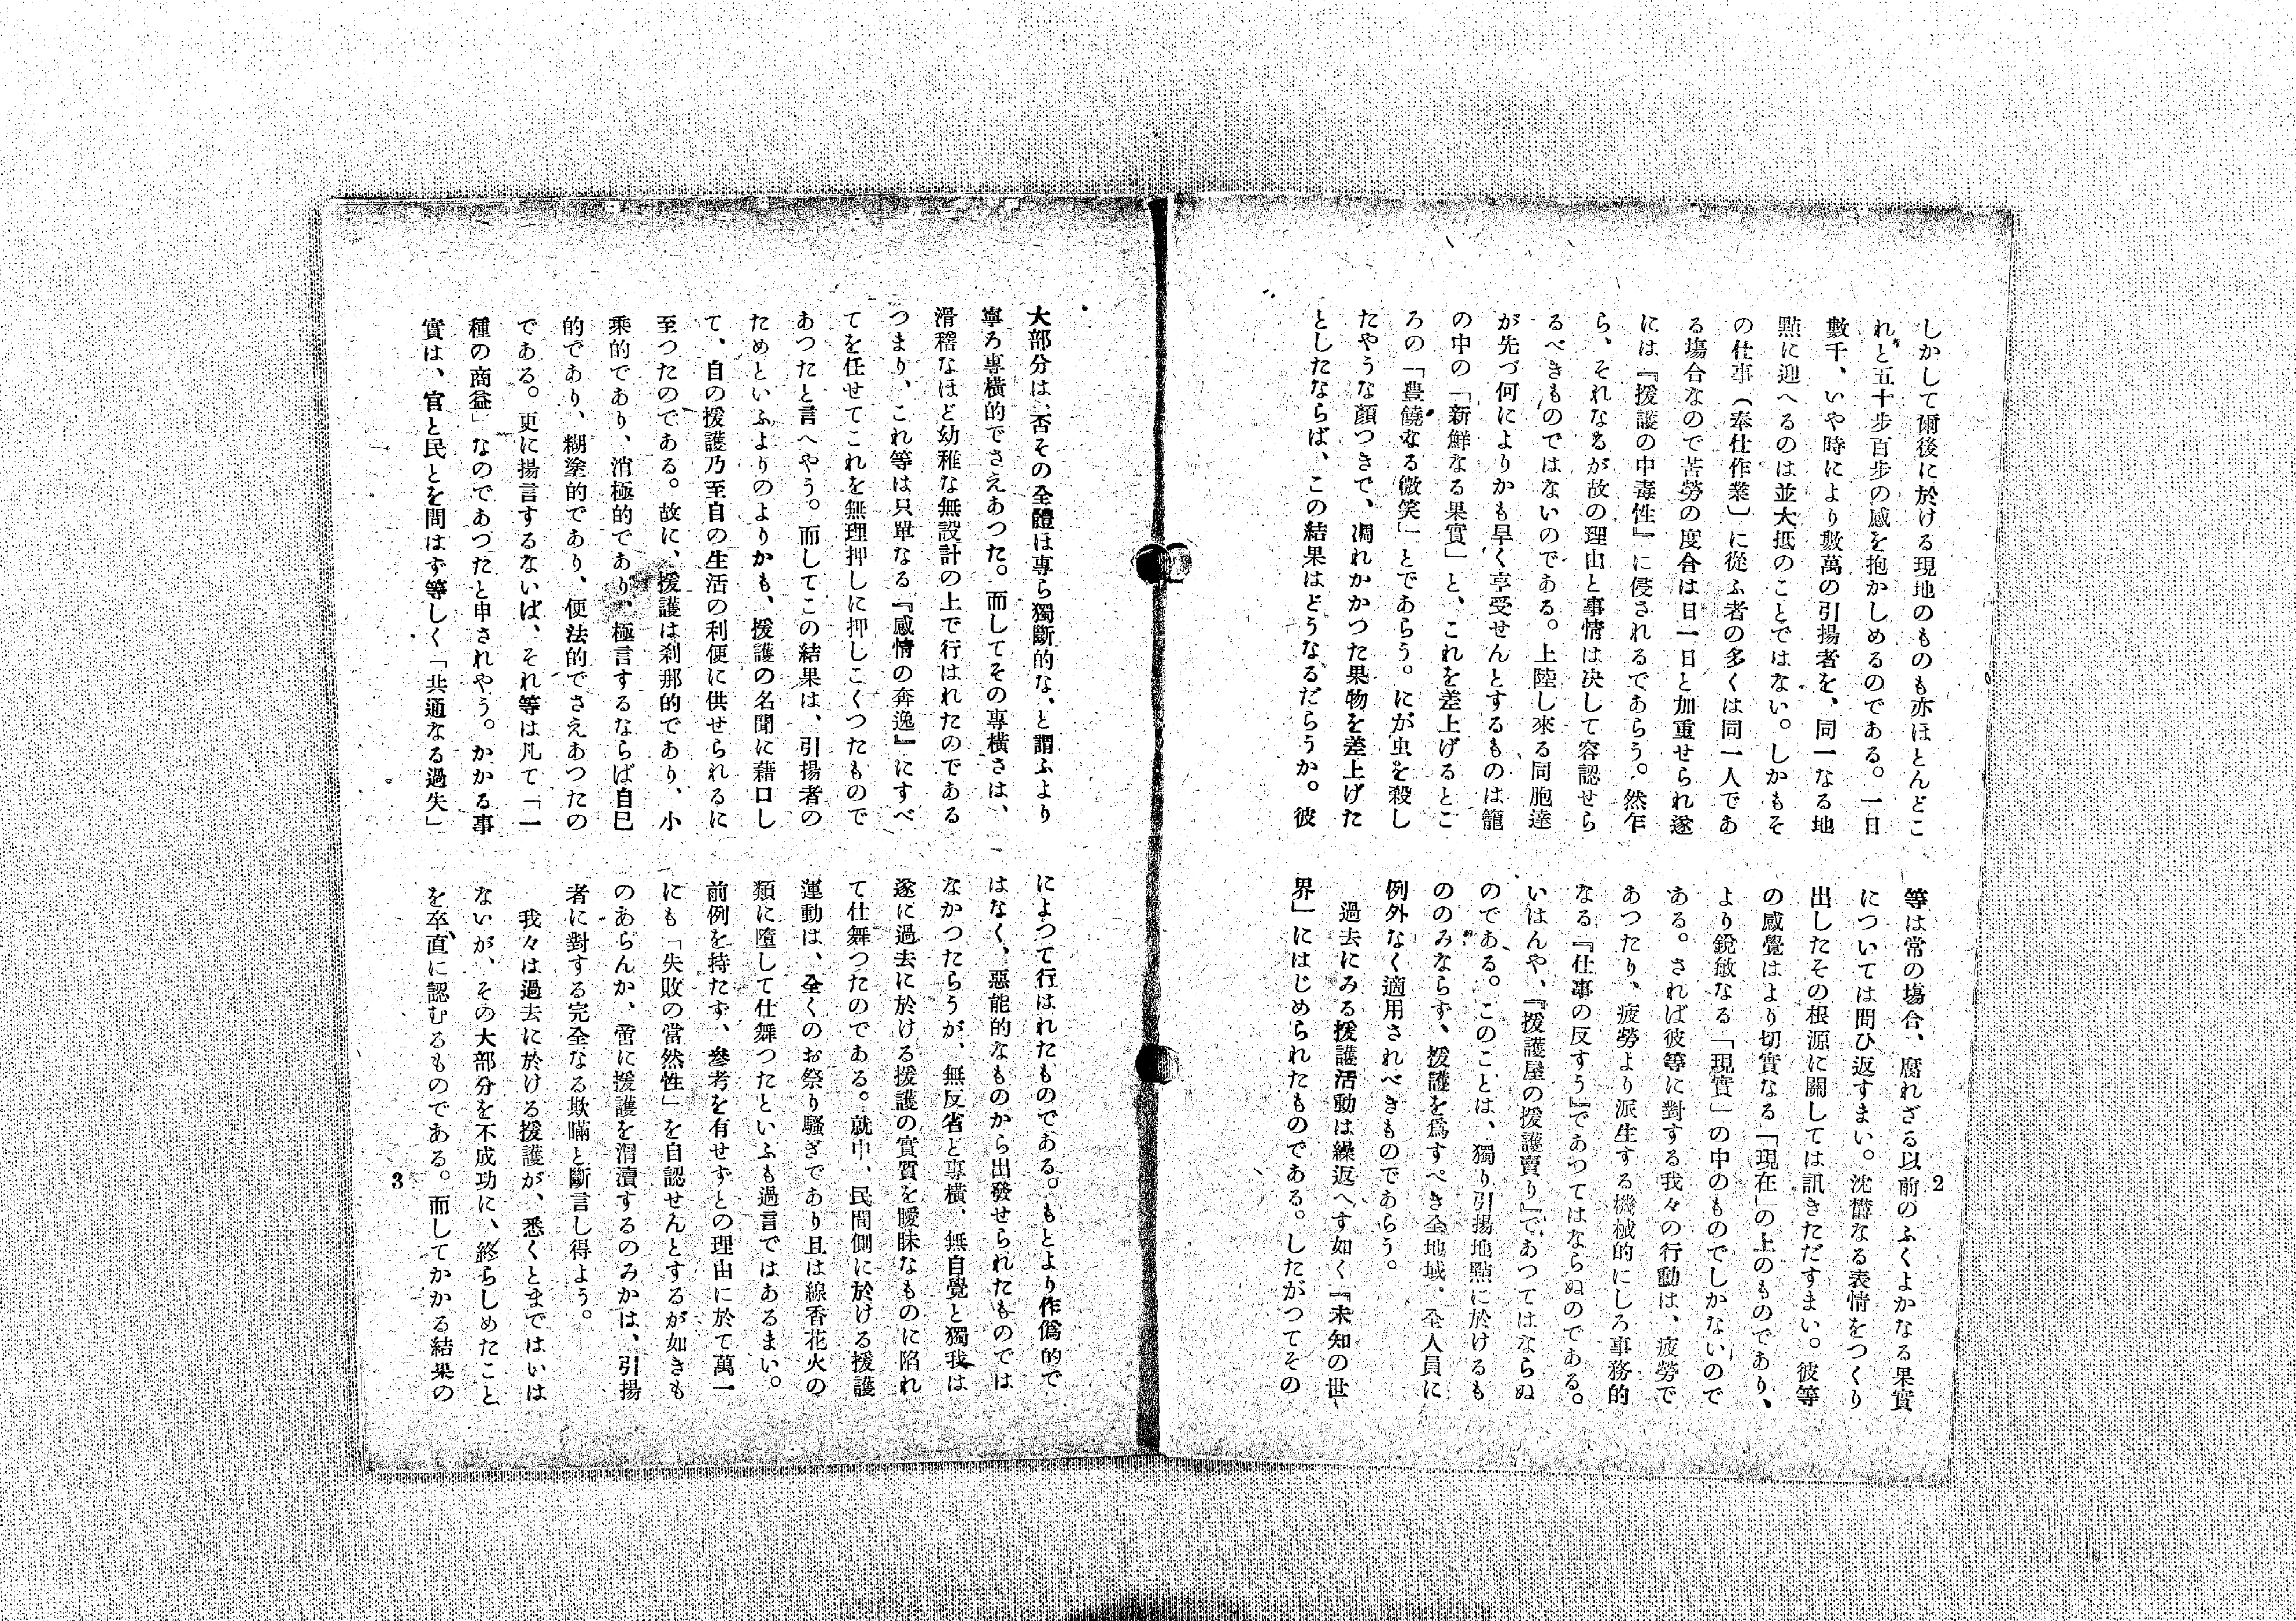 しかして爾後に於ける現地のものも亦ほとんどこ
れと五十歩百歩の感を抱かしめるのである。一日
數千、いや時により數萬の引揚者を、同一なる地
點に迎へるのは並大抵のことではない。しかもそ
の仕事(奉仕作業)に從ふ者の多くは同一人であ
る場合なので苦勞の度合は日一日と加重せられ遂
には『援護の中毒性』に侵されるであらう。然乍
ら、それなるが故の理由と事情は決して容認せら
るべきものではないのである。上陸し來る同胞達
が先づ何によりかも早く享受せんとするものは籠
の中の「新鮮なる果實」と、これを差上げるとこ
ろの「豊饒なる微笑」とであらう。にが虫を殺し
たやうな顏つきで、凋れかかつた果物を差上げた
としたならば、この結果はどうなるだらうか。彼
等は常の場合、腐れざる以前のふくよかなる果實
については問ひ返すまい。沈欝なる表情をつくり
出したその根源に關しては訊きただすまい。彼等
の感覺はより切實なる「現在」の上のものであり、
より鋭敏なる「現實」の中のものでしかないので
ある。されば彼等に對する我々の行動は、疲勞で
あつたり、疲勞より派生する機械的にしろ事務的
なる『仕事の反すう』であつてはならぬのである。
いはんや、『援護屋の援護賣り』であつてはならぬ
のである。このことは、獨り引揚地點に於けるも
ののみならず、援護を爲すべき全地域、全人員に
例外なく適用されべきものであらう。
過去にみる援護活動は繰返へす如く『未知の世
界」にはじめられたものである。したがつてその
2
大部分は、否その全體は專ら獨斷的な、と謂ふより
寧ろ專横的でさえあつた。而してその專橫さは、
滑稽なほど幼稚な無設計の上で行はれたのである
つまり、これ等は只單なる『感情の奔逸』にすべ
てを任せてこれを無理押しに押しこくつたもので
あつたと言へやう。而してこの結果は、引揚者の
ためといふよりのよりかも、援護の名聞に藉口し
て、自の援護乃至自の生活の利便に供せられるに
至つたのである。故に、援護は刹那的であり、小
乘的であり、消極的であり、極言するならば自己
的であり、糊塗的であり、便法的でさえあつたの
である。更に揚言するないば、それ等は凡て「一
種の商益」なのであづたと申されやう。かかる事
實は、官と民とを問はず等しく「共通なる過失」
によつて行はれたものである。もとより作僞的で
はなく、惡能的なものから出發せられたものでは
なかつたらうが、無反省と專橫、無自覺と獨我は
遂に過去に於ける援護の實質を曖昧なものに陷れ
て仕舞つたのである。就中、民間側に於ける援護
運動は、全くのお祭り騷ぎであり且は線香花火の
類に墮して仕舞つたといふも過言ではあるまい。
前例を持たず、參考を有せずとの理由に於て萬一
にも「失敗の當然性」を自認せんとするが如きも
のあらんか、啻に援護を冒瀆するのみかは、引揚
者に對する完全なる欺瞞と斷言し得よう。
我々は過去に於ける援護が、悉くとまではいは
ないが、その大部分を不成功に、終らしめたこと
を卒直に認むるものである。而してかかる結果の
3